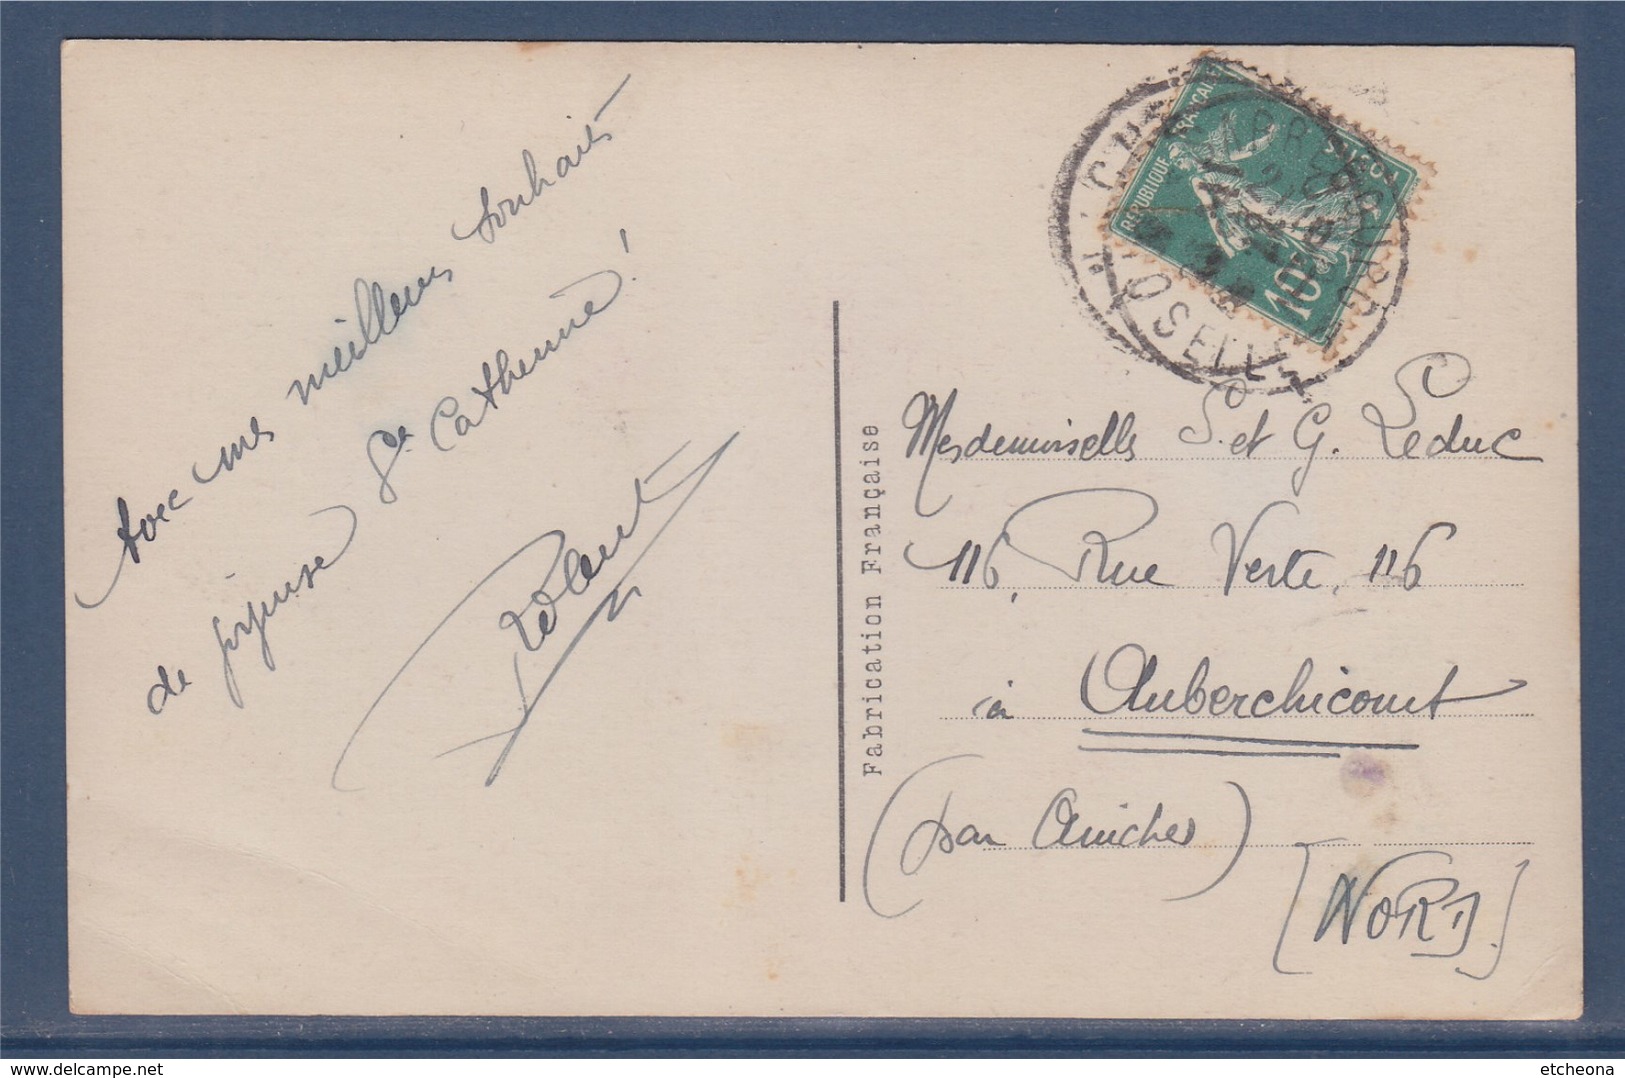 Avec mes meilleurs souhaits
de joyeuse Ste Catherine !
Robert
Fabrication Française
RÉPUBLIQUE FRANÇAISE
POSTES
10
SARREBOURG
MOSELLE
Mesdemoiselles S. et G. Leduc
116, Rue Verte, 116
à Auberchicourt
(par Aniche)
[NORD]
www.delcampe.net
etcheona